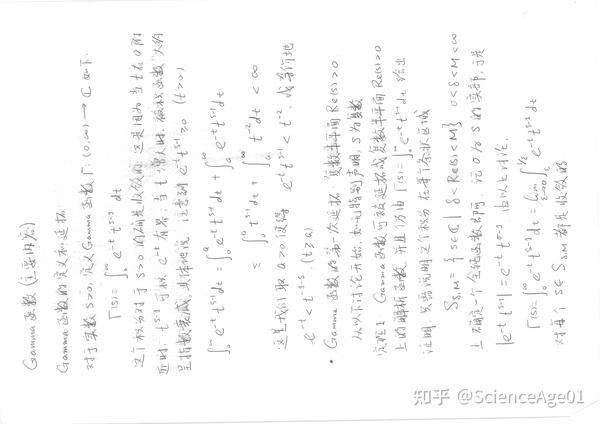 Gamma 函数 (主要内容)
Gamma 函数的定义和延拓.
对于实数 s>0, 定义 Gamma 函数 Γ: (0,∞) → ℂ 如下.
Γ(s) = ∫₀^∞ e^{-t} t^{s-1} dt
这个积分对于 s>0 的确是收敛的. 这是因为当 t 在 0 附
近时, t^{s-1} 可积 e^{-t} 有界, 当 t 常大时, 被积函数大约
呈指数衰减. 具体地说, 注意到 e^{-t} t^{s-1} ≥ 0 (t>0)
∫₀^∞ e^{-t} t^{s-1} dt = ∫₀^a e^{-t} t^{s-1} dt + ∫_a^∞ e^{-t} t^{s-1} dt
≤ ∫₀^a t^{s-1} dt + ∫_a^∞ t^{-2} dt < ∞
这里我们取 a>0 使得 e^{-t} t^{s-1} < t^{-2}, 或等价地
e^{-t} < t^{-1-s}. (t≥a)
• Gamma 函数的第一次延拓: 复数半平面 Re(s)>0.
从以下讨论开始, 如无特别声明, s 为复数
定理1: Gamma 函数可被延拓成复数半平面 Re(s)>0
上的解析函数, 并且仍由 Γ(s)=∫₀^∞ e^{-t} t^{s-1} dt 给出
证明: 只需说明这个积分在每个条状区域
S_{δ,M} = { s∈ℂ | δ<Re(s)<M } 0<δ<M<∞
上确定一个全纯函数即可. 记 σ 为 s 的实部, 于是
|e^{-t} t^{s-1}| = e^{-t} t^{σ-1}. 由以上讨论,
Γ(s) = ∫₀^∞ e^{-t} t^{s-1} dt = lim_{ε→0} ∫_ε^{1/ε} e^{-t} t^{s-1} dt
对每个 s∈S_{δ,M} 都是收敛的
知乎 @ScienceAge01